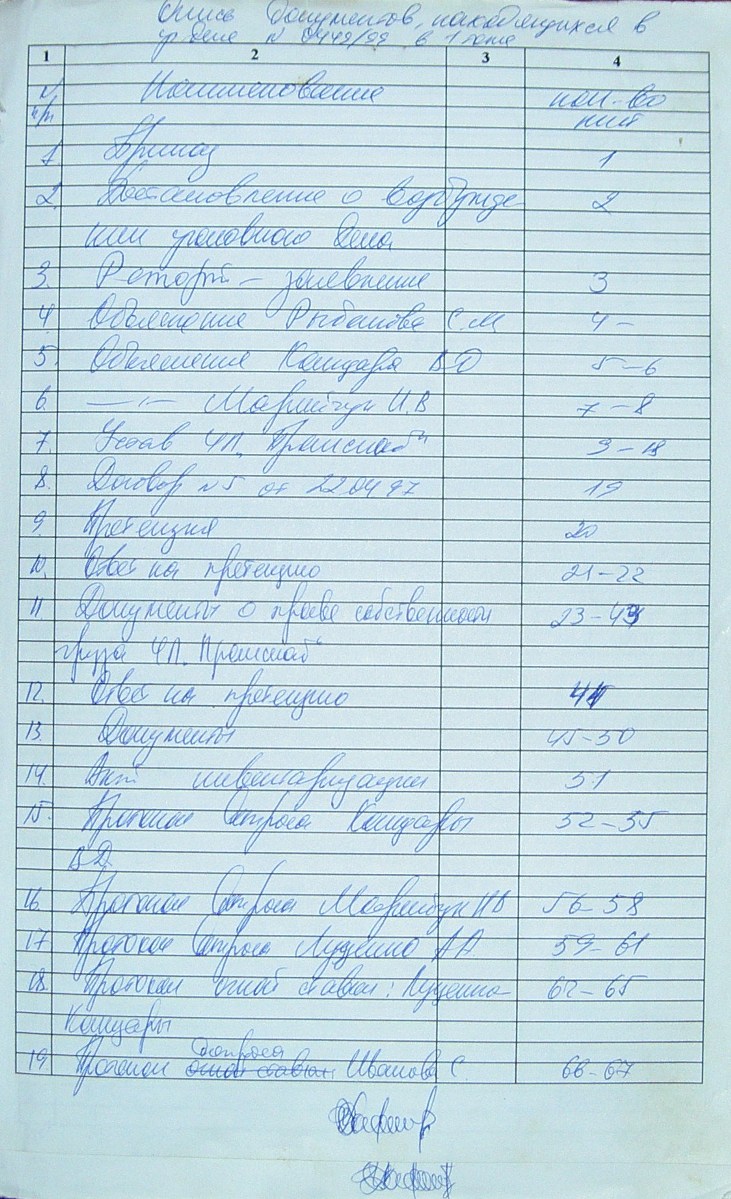 Опись документов, находящихся в
уг. деле N 0449/99 в 1 томе
1 2 3 4
N Наименование кол-во
п/п лист
1 Приказ 1
2. Постановление о возбужде 2
нии уголовного дела
3. Рапорт – заявление 3
4 Объяснение С.М 4 –
5. Объяснение Кондара В Д 5–6
6. —〃— И.В 7–8
7. Устав ЧП „Промснаб" 9–18
8. Договор N5 от 220497 19
9. Претензия 20
10. Ответ на претензию 21–22
11 Документы о праве собственности 23–43
груза ЧП „Промснаб"
12. Ответ на претензию 44
13. Документы 45–50
14. Акт инвентаризации 51
15. Протокол допроса Кондары 52–55
В.Д.
16 Протокол допроса ИВ 56–58
17 Протокол допроса Луценко АА 59–61
18. Протокол очной ставки: Луценко– 62–65
Кондары
допроса
19. Протокол очной ставки Иванова С. 66–67